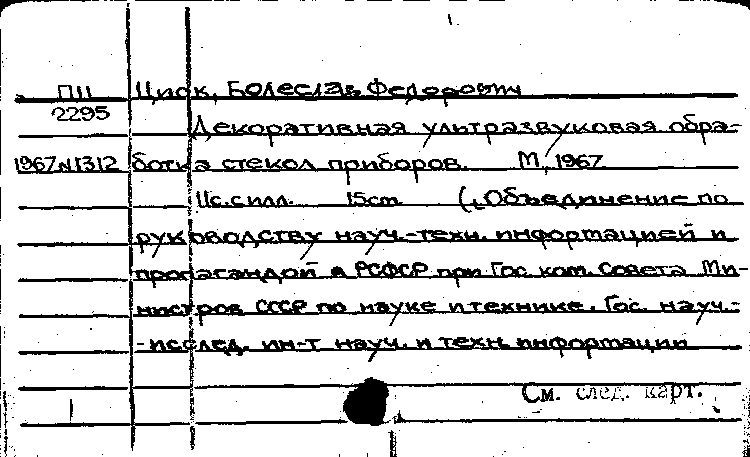 П11 Циок, Болеслав Федорович
2295 Декоративная ультразвуковая обра-
1967N1312 ботка стекол приборов. М, 1967
11с.силл. 15cm (Объединение по
руководству науч.-техн. информацией и
пропагандой в РСФСР при Гос. ком. Совета Ми-
нистров СССР по науке и технике. Гос. науч.-
-исслед. ин-т науч. и техн. информации
См. след. карт.
1